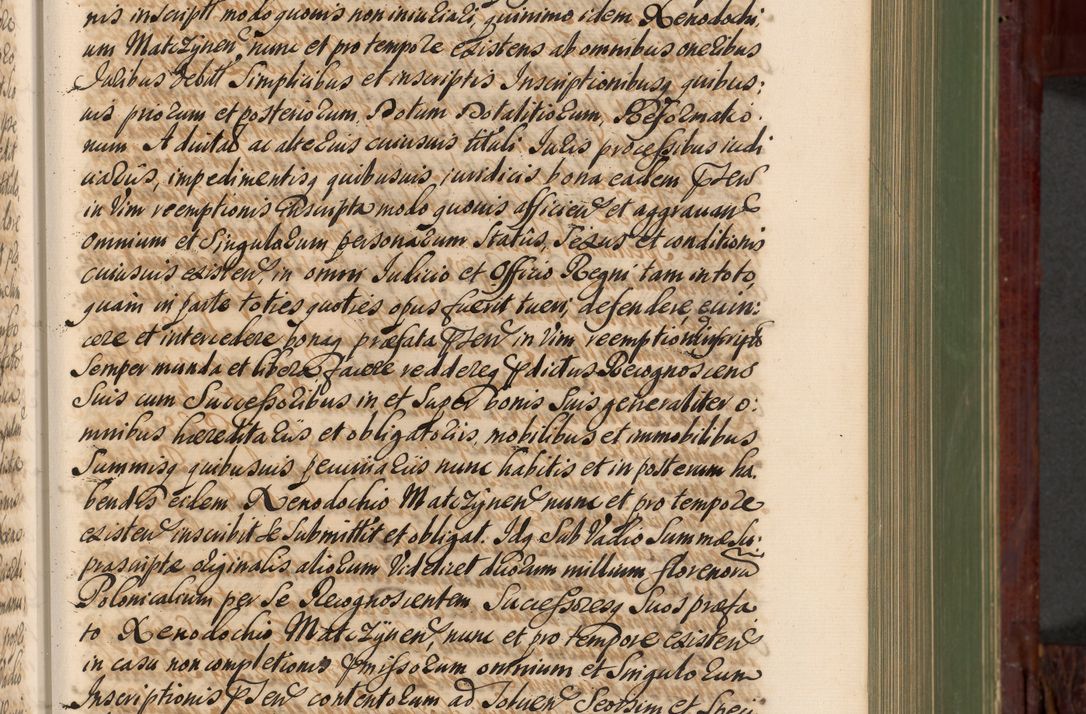 nis inscriptt modo quovis non iniuriari, quinimo idem Xenodochi,
um Matczÿnen nunc et pro tempore existens ab omnibus oneribus
Juribus debitt Simplicibus et inscriptis Inscriptionibusq quibus:
vis priorum et posteriorum, Dotum Dotalitiorum, Reformatio.
num Advitat ac alterius cuiusvis tituli Juris processibus iudi
ciariis, impedimentisq quibusvis, iuridicis bona eadem Psen
in Vim reemptionis Inscripta modo quovis afficien et aggravan
Omnium et Singularum personarum Status, Sexus et conditionis
cuiusvis existen, in omni Judicio et Officio Regni tam in toto,
quam in parte toties quoties opus fuerit tueri, defendere evin:
cere et intercedere bonaq præfata Psen in Vim reemptionis inscript
Semper munda et libera facere reddereq pdictus Recognoscens
Suis cum Successoribus in et Super bonis Suis generaliter o:
mnibus hæreditariis et obligatoriis, mobilibus et immobilibus
Summisq quibusvis pecuniariis nunc habitis et in posterum ha.
bendis eidem Xenodochio Matczÿnen nunc et pro tempore
existen inscribit se Submittit et obligat. Idq Sub Vadio Summæ Su:
prascriptæ originalis aliorum Videlicet duorum millium florenorū
Polonicalium per Se Recognoscentem Successoresq Suos præfa
to Xenodochio Matczÿnen, nunc et pro tempore existen
in casu non completionis Pmissorum omnium et Singulorum
Inscriptionis Psen contentorum ad Solven Seorsim et Speci